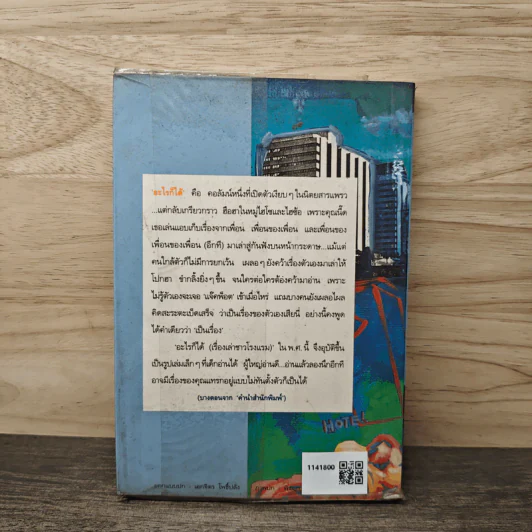 'อะไรก็ได้' คือ คอลัมน์หนึ่งที่เปิดตัวเงียบๆ ในนิตยสารแพรว
...แต่กลับเกรียวกราว ฮือฮาในหมู่ไฮโซและไฮซ้อ เพราะคุณเนี๊ด
เธอเล่นแอบเก็บเรื่องจากเพื่อน เพื่อนของเพื่อน และเพื่อนของ
เพื่อนของเพื่อน (อีกที) มาเล่าสู่กันฟังบนหน้ากระดาษ...แม้แต่
คนใกล้ตัวก็ไม่มีการยกเว้น เผลอๆ ยังคว้าเรื่องตัวเองมาเล่าให้
โปกฮา ขำกลิ้งยิ่งๆ ขึ้น จนใครต่อใครต้องคว้ามาอ่าน เพราะ
ไม่รู้ตัวเองจะเจอ 'แจ๊คพ็อต' เข้าเมื่อไหร่ แถมบางคนยังเผลอไผล
คิดสะระตะเบ็ดเสร็จ ว่าเป็นเรื่องของตัวเองเสียนี่ อย่างนี้คงพูด
ได้คำเดียวว่า 'เป็นเรื่อง'
'อะไรก็ได้ (เรื่องเล่าชาวโรงแรม)' ใน พ.ศ. นี้ จึงอุบัติขึ้น
เป็นรูปเล่มเล็กๆ ที่เด็กอ่านได้ ผู้ใหญ่อ่านดี...อ่านแล้วลองนึกอีกที
อาจมีเรื่องของคุณแทรกอยู่แบบไม่ทันตั้งตัวก็เป็นได้
(บางตอนจาก 'คำนำสำนักพิมพ์')
HOTEL
1141800